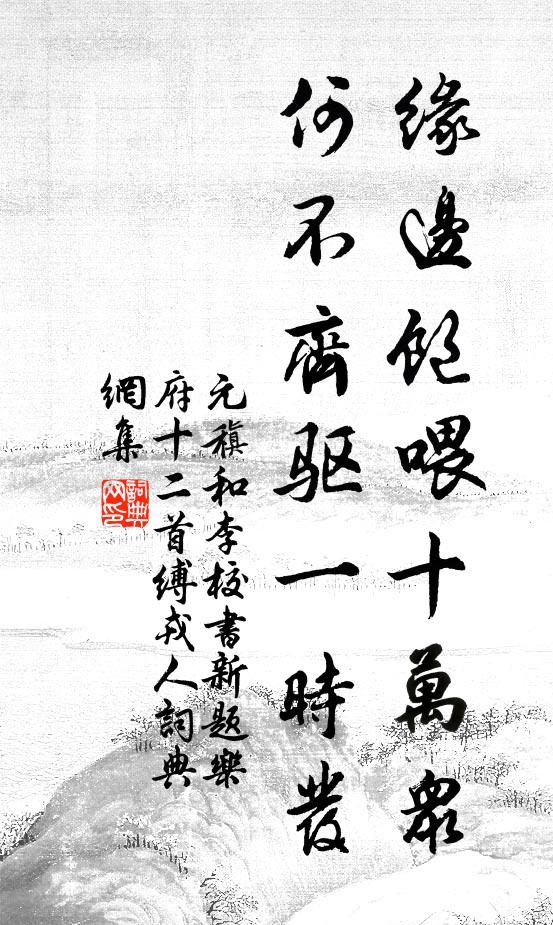 緣邊飽喂十萬眾
何不齊驅一時發
元稹和李校書新題樂
府十二首縛戎人詞典
網集
詞典網印